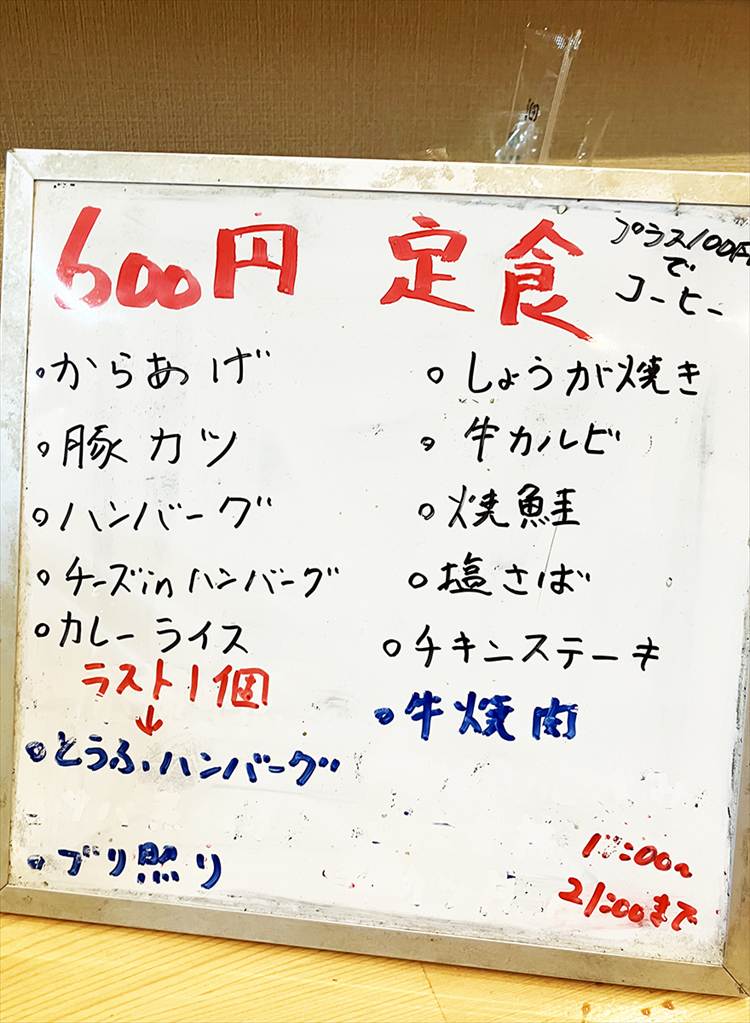 600円 定食
プラス100円
で
コーヒー
・からあげ
・豚カツ
・ハンバーグ
・チーズinハンバーグ
・カレーライス
ラスト1個
↓
・とうふハンバーグ
・ブリ照り
・しょうが焼き
・牛カルビ
・焼鮭
・塩さば
・チキンステーキ
・牛焼肉
21:00まで